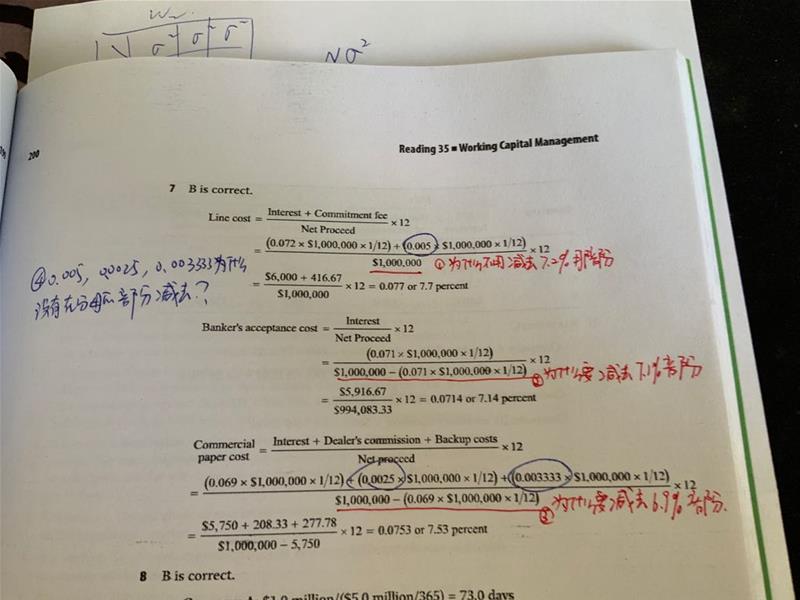 Wn.
√ σ² σ² σ²
Nσ²
200
Reading 35 ■ Working Capital Management
7 B is correct.
Line cost = Interest + Commitment fee / Net Proceed × 12
= (0.072 × $1,000,000 × 1/12) + (0.005 × $1,000,000 × 1/12) / $1,000,000 × 12
① 为什么不用减去7.2%那部分
④ 0.005, 0.0025, 0.003333为什么
没有在分母部分减去?
= $6,000 + 416.67 / $1,000,000 × 12 = 0.077 or 7.7 percent
Banker's acceptance cost = Interest / Net Proceed × 12
= (0.071 × $1,000,000 × 1/12) / $1,000,000 − (0.071 × $1,000,000 × 1/12) × 12
② 为什么要减去7.1%部分
= $5,916.67 / $994,083.33 × 12 = 0.0714 or 7.14 percent
Commercial paper cost = Interest + Dealer's commission + Backup costs / Net proceed × 12
= (0.069 × $1,000,000 × 1/12) + (0.0025 × $1,000,000 × 1/12) + (0.003333 × $1,000,000 × 1/12) / $1,000,000 − (0.069 × $1,000,000 × 1/12) × 12
③ 为什么要减去6.9%部分.
= $5,750 + 208.33 + 277.78 / $1,000,000 − 5,750 × 12 = 0.0753 or 7.53 percent
8 B is correct.
A: $1.0 million/($5.0 million/365) = 73.0 days